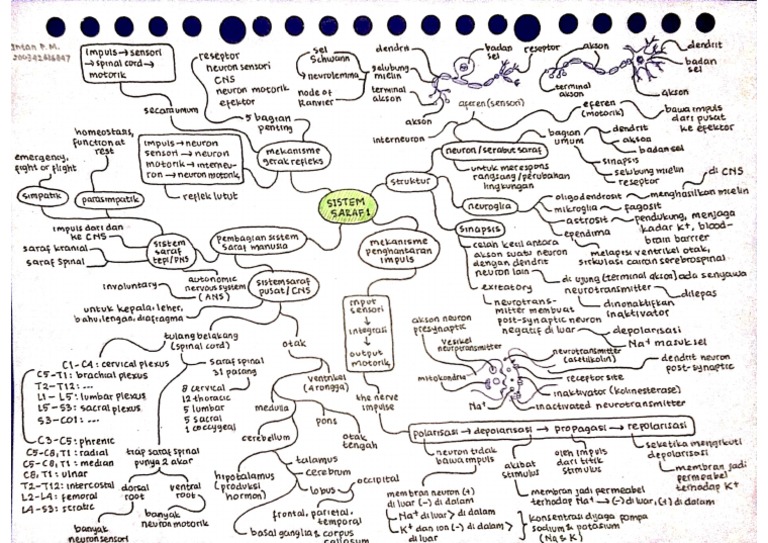 Intan P. M.
impuls → sensori
→ spinal cord →
motorik
reseptor
neuron sensori
CNS
neuron motorik
efektor
secara umum
5 bagian
penting
homeostasis,
function at
rest
emergency,
fight or flight
impuls → neuron
sensori → neuron
motorik → interneu-
ron → neuron motorik
mekanisme
gerak refleks
refleks lutut
simpatik
parasimpatik
impuls dari dan
ke CNS
saraf kranial
saraf spinal
sistem
saraf
tepi/PNS
pembagian sistem
saraf manusia
SISTEM
SARAF 1
involuntary
autonomic
nervous system
(ANS)
sistem saraf
pusat/CNS
untuk kepala, leher,
bahu, lengan, diafragma
tulang belakang
(spinal cord)
otak
C1-C4: cervical plexus
C5-T1: brachial plexus
T2-T12: ...
L1-L5: lumbar plexus
L5-S3: sacral plexus
S3-CO1: ...
C3-C5: phrenic
C5-C8, T1: radial
C5-C8, T1: median
C8, T1: ulnar
T2-T12: intercostal
L2-L4: femoral
saraf spinal
31 pasang
8 cervical
12 thoracic
5 lumbar
5 sacral
1 coccygeal
tiap saraf spinal
punya 2 akar
dorsal
root
ventral
root
banyak
neuron sensori
banyak
neuron motorik
ventrikel
(4 rongga)
medulla
pons
cerebellum
otak
tengah
hipotalamus
(produksi
hormon)
talamus
cerebrum
lobus
occipital
frontal, parietal,
temporal
basal ganglia & corpus
callosum
sel
Schwann
neurolemma
node of
Ranvier
dendrit
selubung
mielin
terminal
akson
akson
badan
sel
reseptor
akson
dendrit
badan
sel
akson
terminal
akson
aferen (sensori)
eferen
(motorik)
bawa impuls
dari pusat
ke efektor
interneuron
neuron/serabut saraf
bagian
umum
dendrit
akson
badan sel
sinapsis
selubung mielin
reseptor
untuk merespons
rangsang/perubahan
lingkungan
struktur
neuroglia
oligodendrosit
menghasilkan mielin
di CNS
mikroglia
fagosit
astrosit
pendukung, menjaga
kadar K⁺, blood-
brain barrier
ependima
melapisi ventrikel otak,
sirkulasi cairan serebrospinal
sinapsis
celah kecil antara
akson suatu neuron
dengan dendrit
neuron lain
di ujung (terminal akson) ada senyawa
neurotransmitter
dilepas
dinonaktifkan
inaktivator
exitatory
neurotrans-
mitter membuat
post-synaptic neuron
negatif di luar
depolarisasi
Na⁺ masuk sel
mekanisme
penghantaran
impuls
input
sensori
↓
integrasi
↓
output
motorik
the nerve
impulse
akson neuron
presynaptic
vesikel
neurotransmitter
mitokondria
Na⁺
neurotransmitter
(asetilkolin)
dendrit neuron
post-synaptic
receptor site
inaktivator (kolinesterase)
inactivated neurotransmitter
polarisasi → depolarisasi → propagasi → repolarisasi
neuron tidak
bawa impuls
akibat
stimulus
oleh impuls
dari titik
stimulus
seketika mengikuti
depolarisasi
membran jadi
permeabel
terhadap K⁺
membran neuron (+)
di luar (-) di dalam
Na⁺ di luar > di dalam
K⁺ dan ion (-) di dalam >
di luar
membran jadi permeabel
terhadap Na⁺ → (-) di luar, (+) di dalam
konsentrasi dijaga pompa
sodium & potasium
(Na & K)